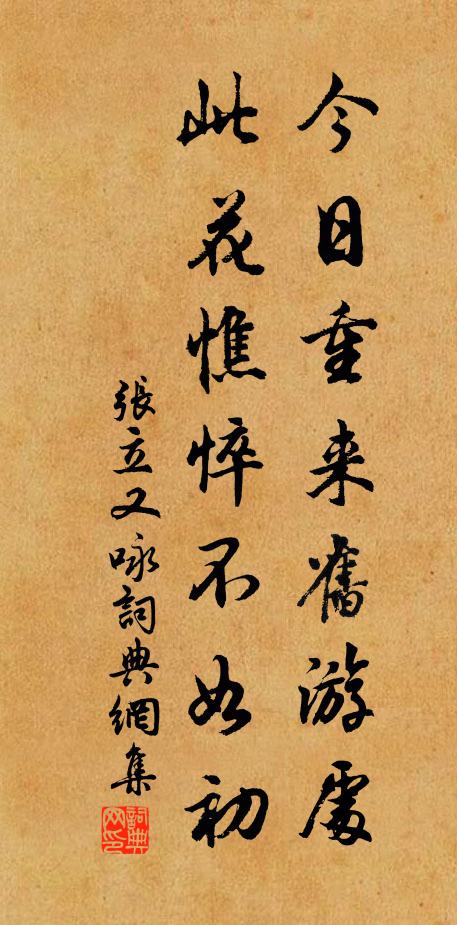 今日重来舊游處
此花憔悴不如初
張立又咏詞典網集
詞典網印